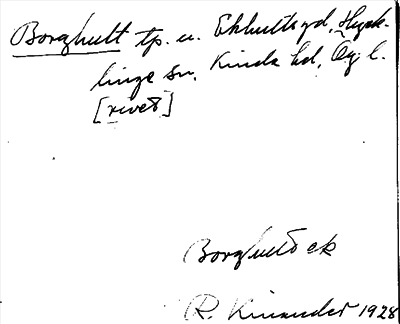 Borghult tp. u. Ekhultsgd, Hyck-
linge sn. Kinda hd, Ög. l.
[rivet]
Borghult ek
R. Kinander 1928